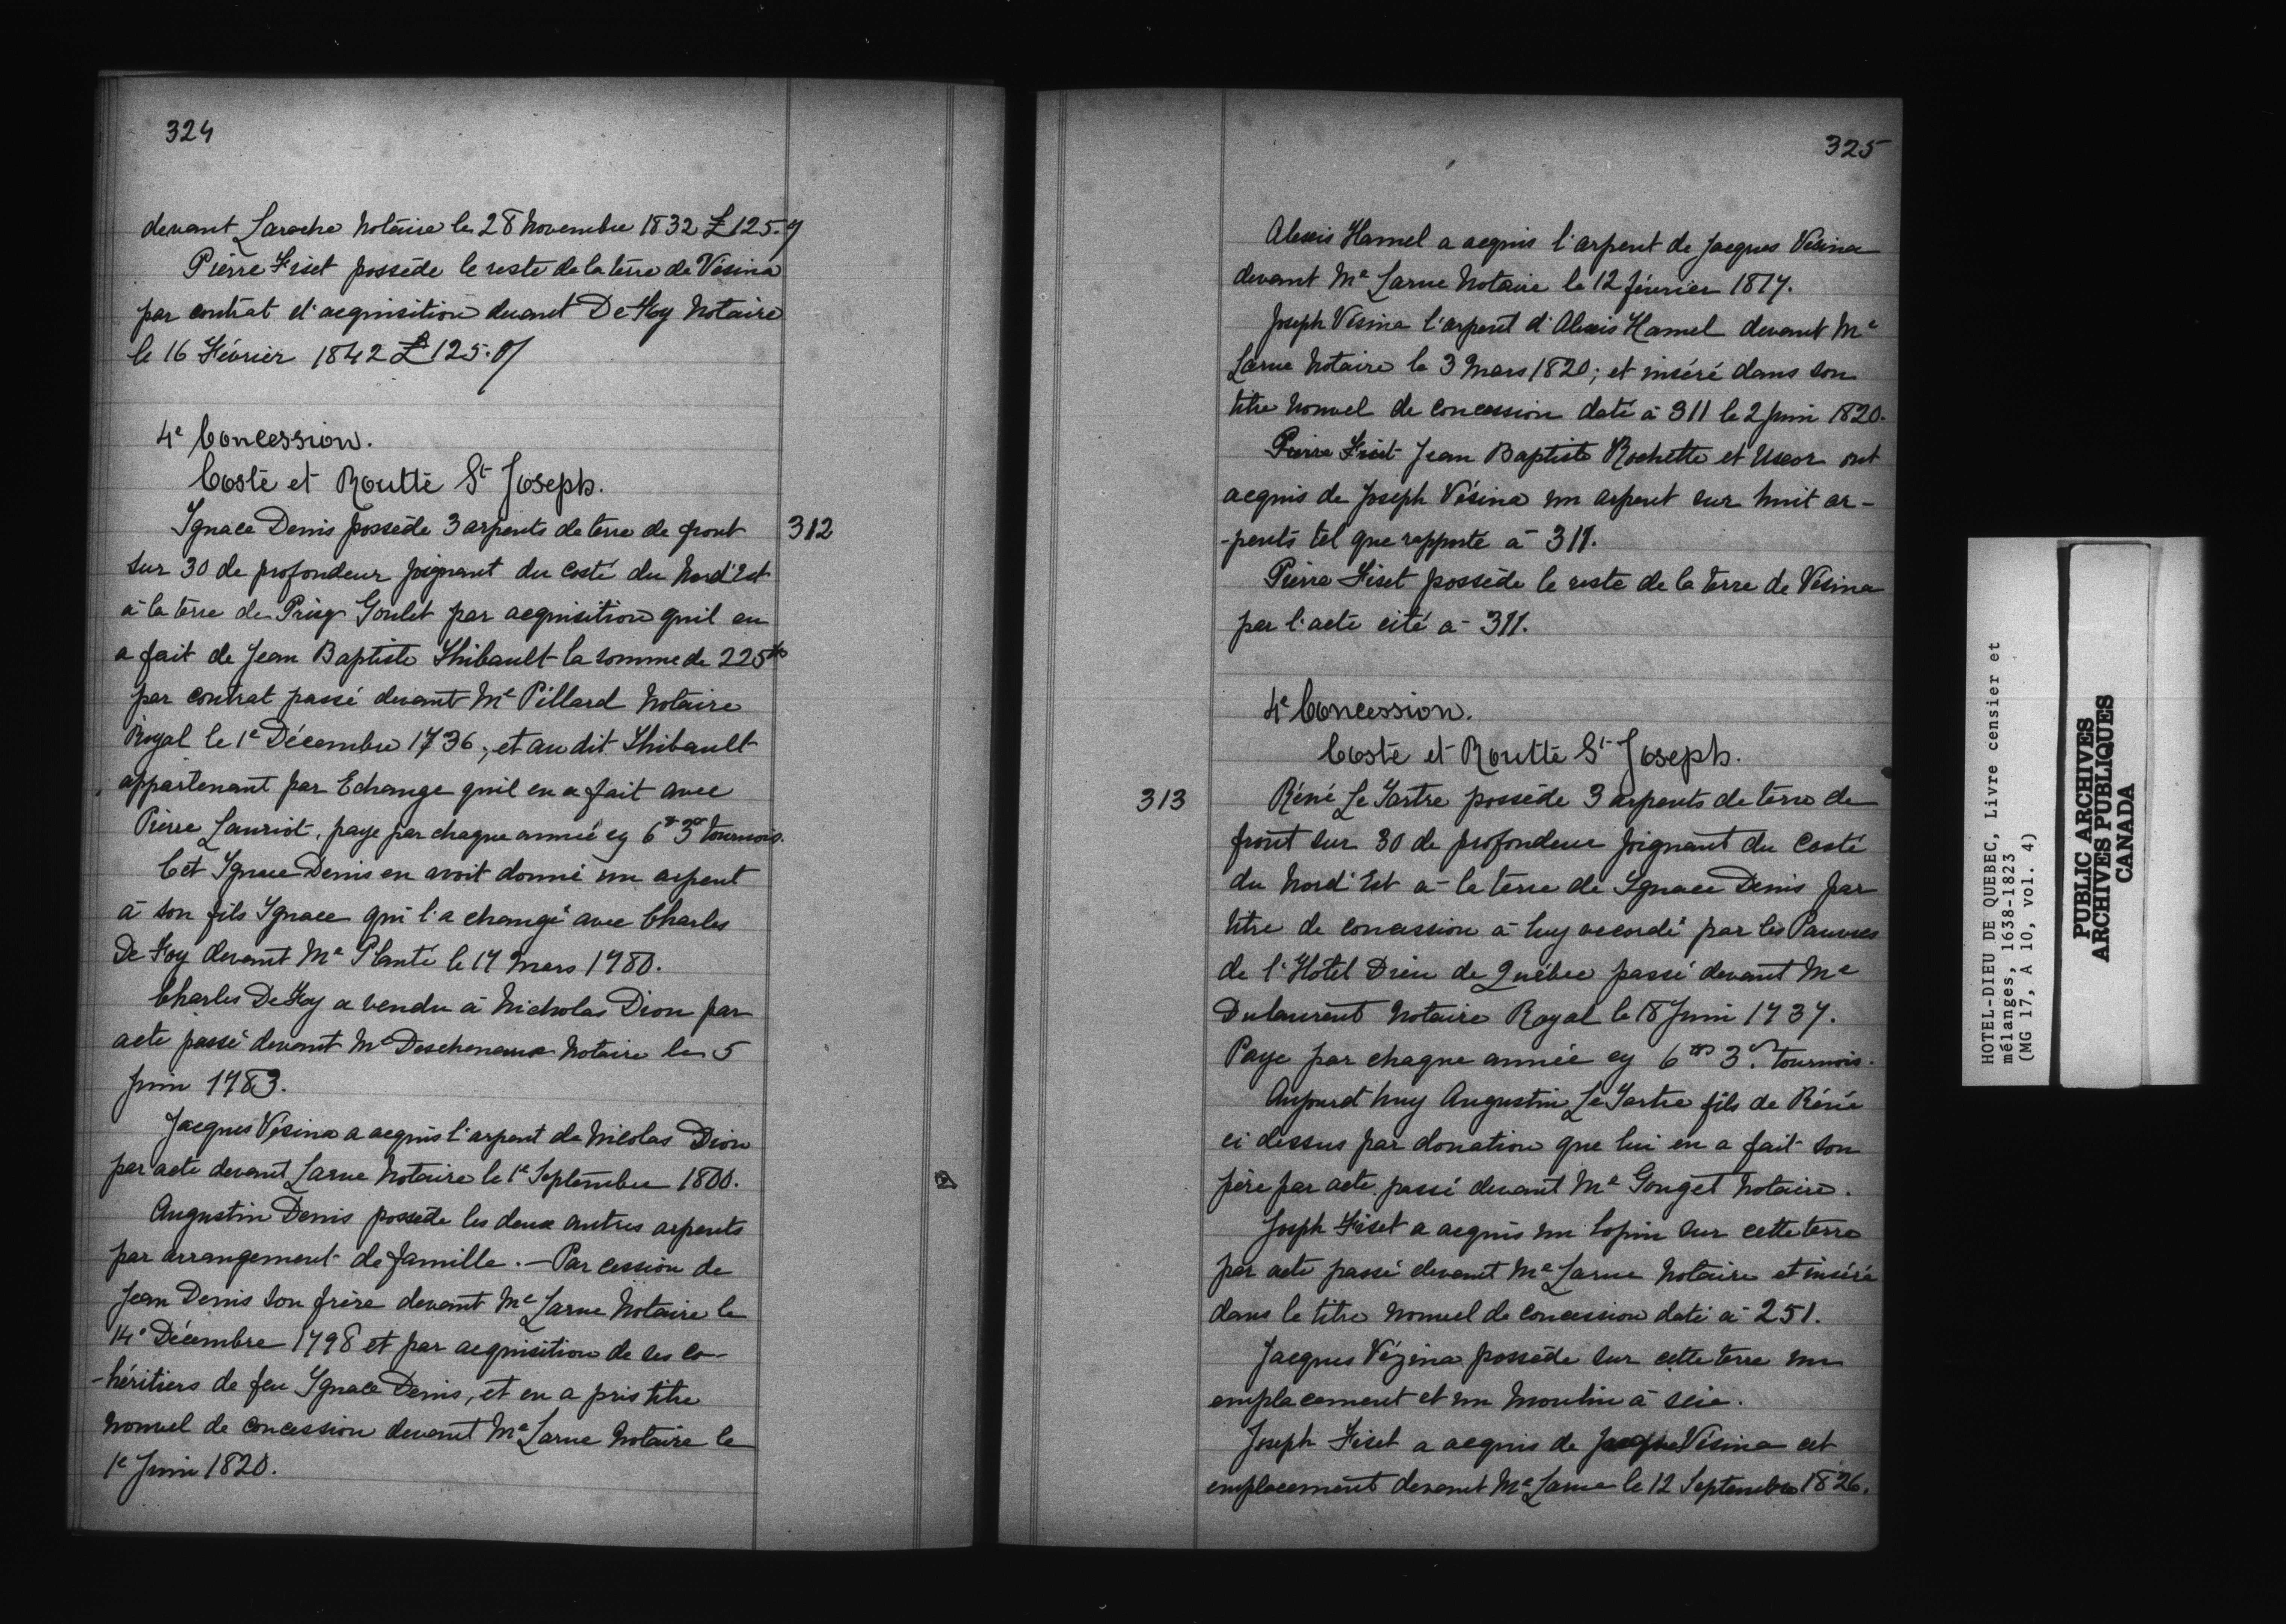 324
devant Laroche Notaire le 28 Novembre 1832 £125.
Pierre Fiset possède le reste de la terre de Vésina
par contrat d'acquisition devant De Foy Notaire
le 16 Février 1842 £125.
4e Concession.
Costé et Routte St Joseph.
312
Ignace Denis possède 3 arpents de terre de front
sur 30 de profondeur joignant du costé du Nord'Est
à la terre de Prisq Goulet par acquisition quil en
a fait de Jean Baptiste Thibault la somme de 225tt
par contrat passé devant Me Pillard Notaire
Royal le 1e Décembre 1736, et au dit Thibault
appartenant par Echange quil en a fait avec
Pierre Lauriot, paye par chaque année cy 6tt 3s tournois.
Cet Ignace Denis en avoit donné un arpent
à son fils Ignace qui l'a changé avec Charles
De Foy devant Me Planté le 17 Mars 1780.
Charles De Foy a vendu à Nicholas Dion par
acte passé devant Me Descheneaux Notaire le 5
Juin 1783.
Jacques Vésina a acquis l'arpent de Nicolas Dion
par acte devant Larue Notaire le 1e Septembre 1800.
Augustin Denis possède les deux autres arpents
par arrangement de famille. — Par cession de
Jean Denis son frère devant Me Larue Notaire le
14e Décembre 1798 et par acquisition de ses co-
-héritiers de feu Ignace Denis, et en a pris titre
nouvel de concession devant Me Larue Notaire le
1e Juin 1820.
325
Alexis Hamel a acquis l'arpent de Jacques Vésina
devant Me Larue Notaire le 12 février 1817.
Joseph Vésina l'arpent d'Alexis Hamel devant Me
Larue Notaire le 3 Mars 1820; et inséré dans son
titre nouvel de concession daté à 311 le 2 Juin 1820.
Pierre Fiset Jean Baptiste Rochette et Uxor ont
acquis de Joseph Vésina un arpent sur huit ar-
-pents tel que rapporté à 311.
Pierre Fiset possède le reste de la terre de Vésina
par l'acte cité à 311.
4e Concession.
Costé et Routte St Joseph.
313
Réné Le Tartre possède 3 arpents de terre de
front sur 30 de profondeur joignant du Costé
du Nord'Est à la terre de Ignace Denis par
titre de concession à luy accordé par les Pauvres
de l'Hôtel Dieu de Québec passé devant Me
Dulaurent Notaire Royal le 18 Juin 1737.
Paye par chaque année cy 6tt 3s. tournois.
Aujourd'huy Augustin Le Tartre fils de Réné
ci dessus par donation que lui en a fait son
père par acte passé devant Me Gouget Notaire.
Joseph Fiset a acquis un lopin sur cette terre
par acte passé devant Me Larue Notaire et inséré
dans le titre nouvel de concession daté à 251.
Jacques Vézina possède sur cette terre un
emplacement et un moulin à scie.
Joseph Fiset a acquis de Jacques Vésina cet
emplacement devant Me Larue le 12 Septembre 1826.
HOTEL-DIEU DE QUEBEC, Livre censier et
mélanges, 1638-1823
(MG 17, A 10, vol. 4)
PUBLIC ARCHIVES
ARCHIVES PUBLIQUES
CANADA